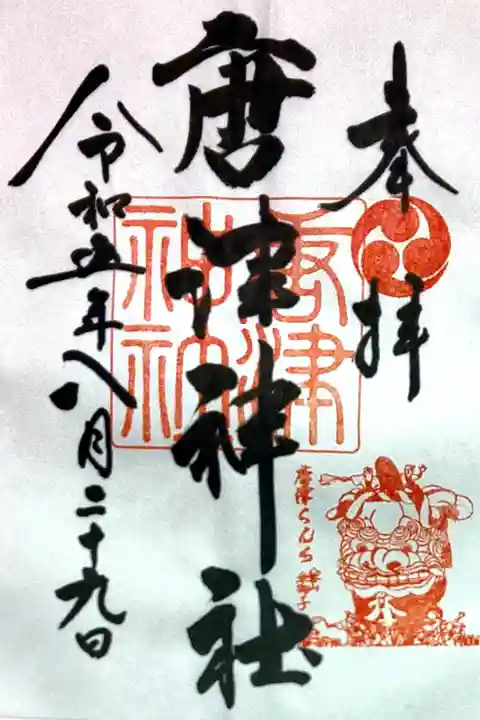 奉拝
唐津神社
唐津神社
令和五年八月二十九日
唐津くんち 獅子